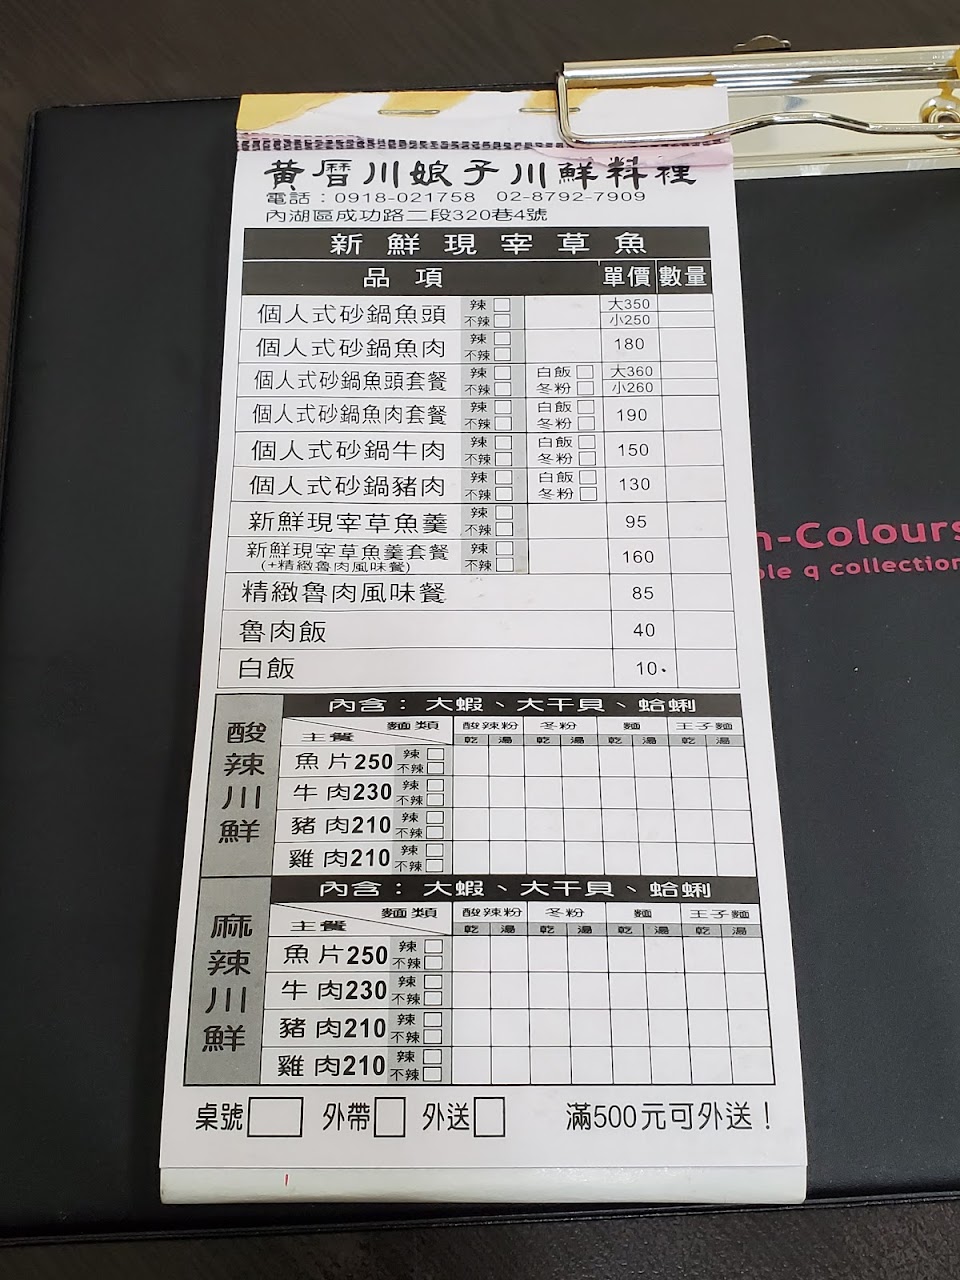 黃曆川娘子川鮮料裡
電話：0918-021758 02-8792-7909
內湖區成功路二段320巷4號
新鮮現宰草魚
品項 單價 數量
個人式砂鍋魚頭 辣 不辣 大350 小250
個人式砂鍋魚肉 辣 不辣 180
個人式砂鍋魚頭套餐 辣 不辣 白飯 冬粉 大360 小260
個人式砂鍋魚肉套餐 辣 不辣 白飯 冬粉 190
個人式砂鍋牛肉 辣 不辣 白飯 冬粉 150
個人式砂鍋豬肉 辣 不辣 白飯 冬粉 130
新鮮現宰草魚羹 辣 不辣 95
新鮮現宰草魚羹套餐 (+精緻魯肉風味餐) 辣 不辣 160
精緻魯肉風味餐 85
魯肉飯 40
白飯 10
酸辣川鮮
內含：大蝦、大干貝、蛤蜊
主餐 麵類 酸辣粉 冬粉 麵 王子麵
乾 湯 乾 湯 乾 湯 乾 湯
魚片250 辣 不辣
牛肉230 辣 不辣
豬肉210 辣 不辣
雞肉210 辣 不辣
麻辣川鮮
內含：大蝦、大干貝、蛤蜊
主餐 麵類 酸辣粉 冬粉 麵 王子麵
乾 湯 乾 湯 乾 湯 乾 湯
魚片250 辣 不辣
牛肉230 辣 不辣
豬肉210 辣 不辣
雞肉210 辣 不辣
桌號 外帶 外送 滿500元可外送！
n-Colours
ple q collection